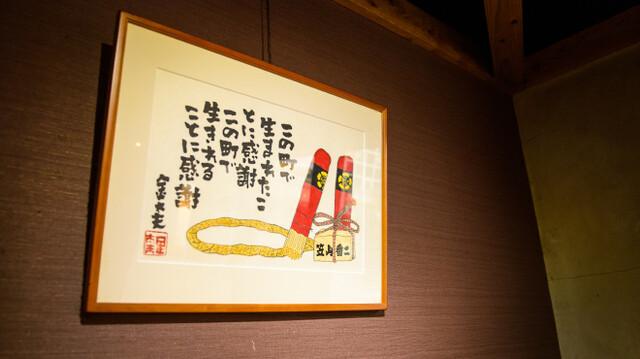 この町で
生まれたこ
とに感謝
この町で
生きれる
ことに感謝
二番山笠